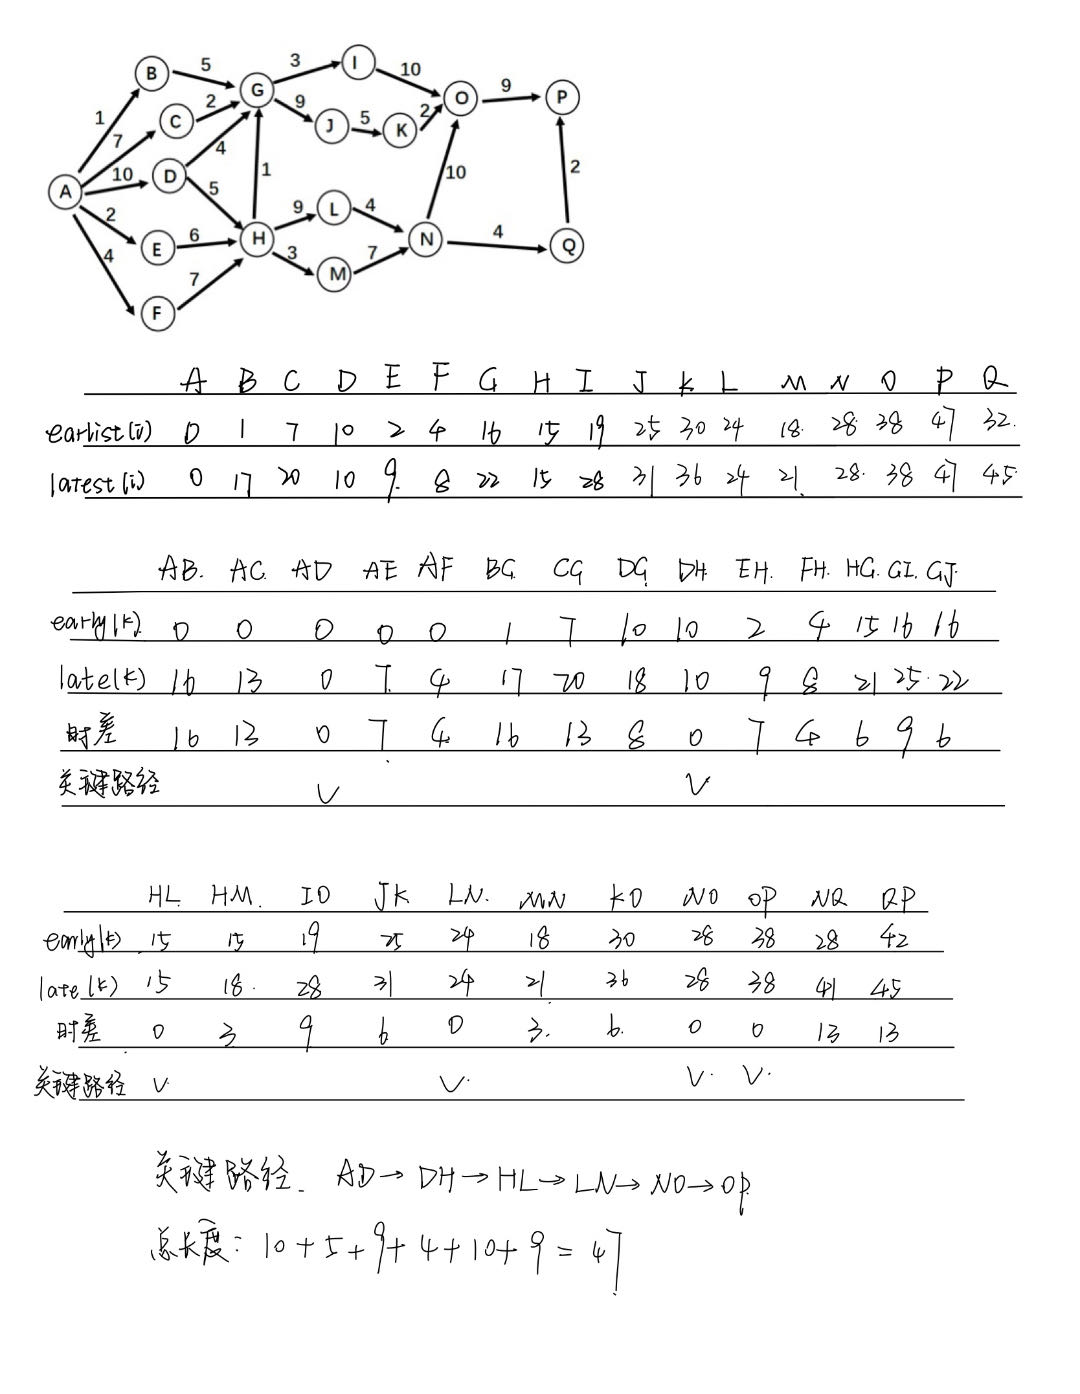 B 5 G 3 I 10 O 9 P
1 7 C 2 9 J 5 K 2
A 10 D 4 1 10 2
2 5 9 L 4
E 6 H 3 M 7 N 4 Q
4 7
F
A B C D E F G H I J K L M N O P Q
earlist(i) 0 1 7 10 2 4 16 15 19 25 30 24 18 28 38 47 32
latest(i) 0 17 20 10 9 8 22 15 28 31 36 24 21 28 38 47 45
AB. AC. AD AE AF BG CG DG. DH. EH. FH. HG. GI. GJ.
early(k) 0 0 0 0 0 1 7 10 10 2 4 15 16 16
late(k) 16 13 0 7 4 17 20 18 10 9 8 21 25 22
时差 16 13 0 7 4 16 13 8 0 7 4 6 9 6
关键路径 ✓ ✓
HL. HM. IO JK LN. MN KO NO OP NQ QP
early(k) 15 15 19 25 24 18 30 28 38 28 42
late(k) 15 18 28 31 24 21 36 28 38 41 45
时差 0 3 9 6 0 3. 6. 0 0 13 13
关键路径 ✓ ✓ ✓ ✓
关键路径. AD→DH→HL→LN→NO→OP
总长度: 10+5+9+4+10+9=47